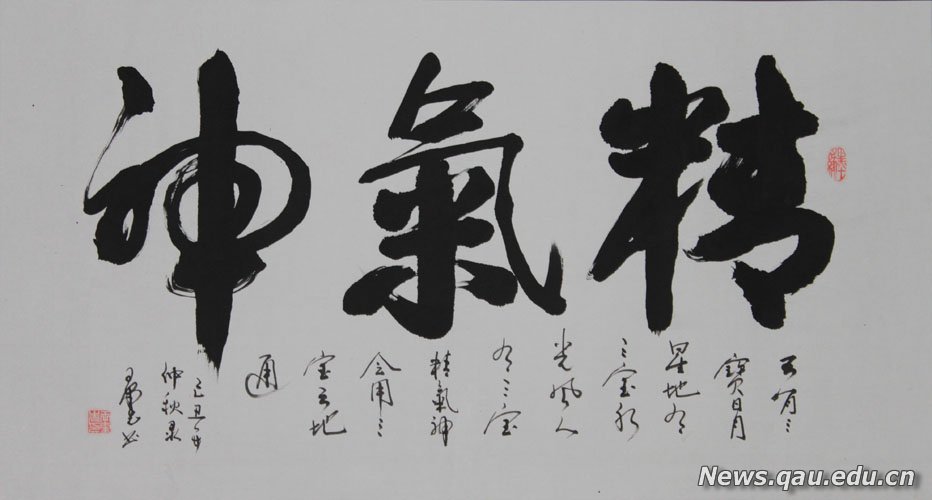 精氣神
天有三
寶日月
星地有
三宝水
火風人
有三宝
精氣神
会用三
宝天地
通
己丑年
仲秋泉
News.qau.edu.cn